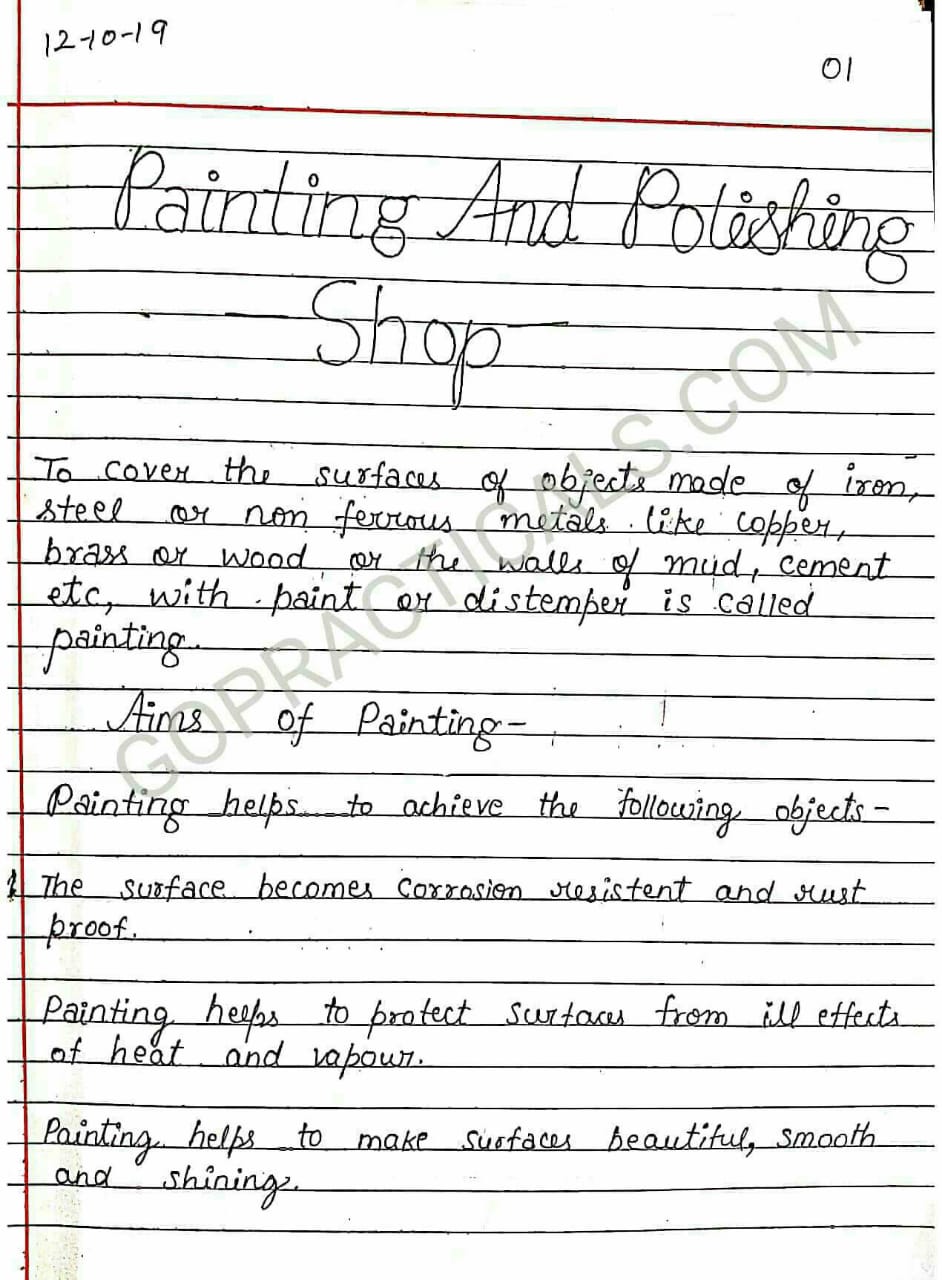 12-10-19
01
Painting And Polishing
Shop
To cover the surfaces of objects made of iron,
steel or non ferrous metals like copper,
brass or wood or the walls of mud, cement
etc, with paint or distemper is called
painting.
Aims of Painting-
Painting helps to achieve the following objects-
1 The surface becomes corrosion resistent and rust
proof.
Painting helps to protect surfaces from ill effects
of heat and vapour.
Painting helps to make surfaces beautiful, smooth
and shining.
GOPRACTICALS.COM